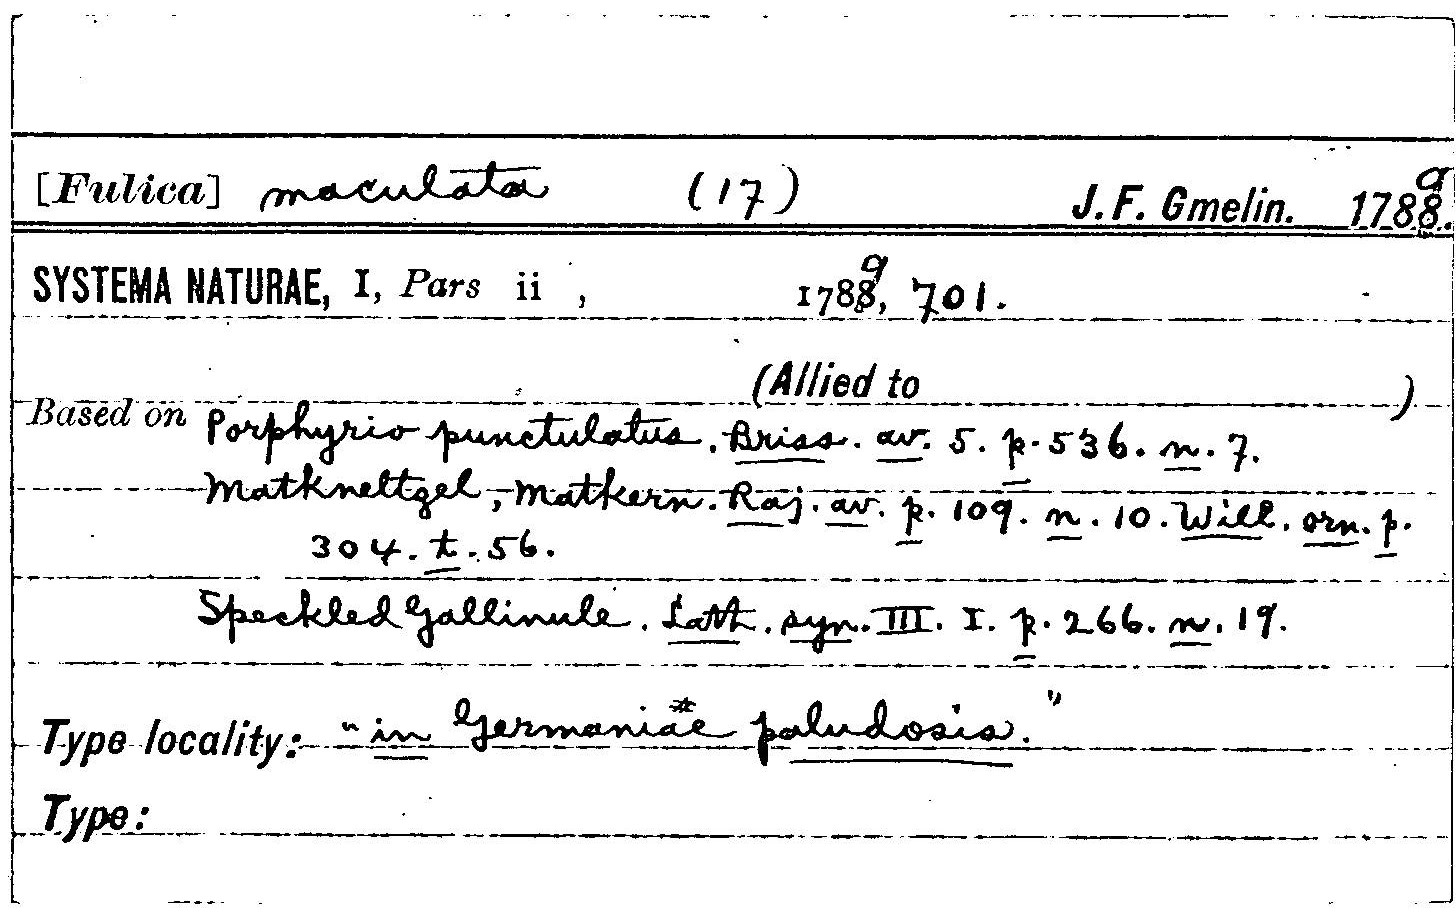 [Fulica] maculata (17) J. F. Gmelin. 1789.
SYSTEMA NATURAE, I, Pars ii , 1789, 701.
(Allied to )
Based on Porphyrio punctulatus. Briss. av. 5. p. 536. n. 7.
Matkneltzel, Matkern. Raj. av. p. 109. n. 10. Will. orn. p.
304. t. 56.
Speckled Gallinule. Lath. syn. III. I. p. 266. n. 19.
Type locality: "in Germaniae paludosis."
Type: